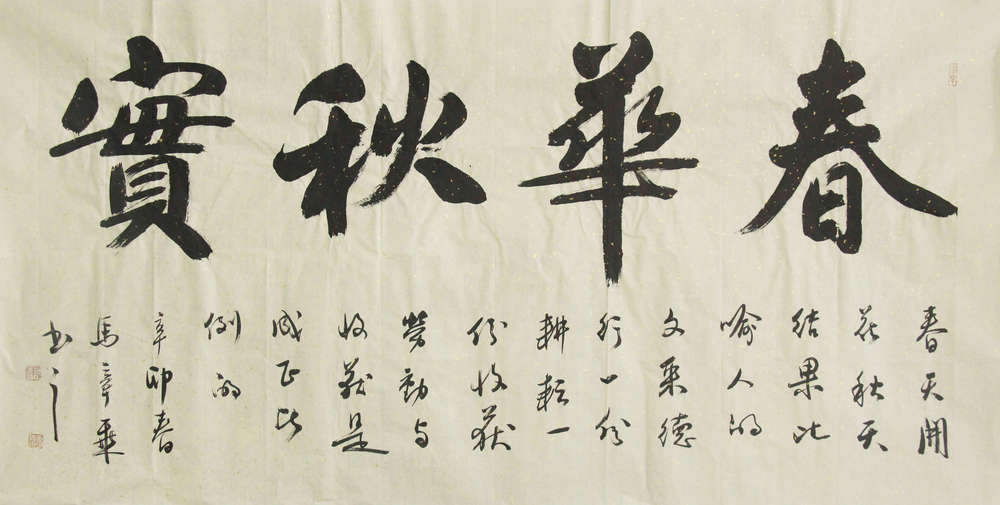 春華秋實
春天開
花秋天
結果比
喻人的
文采德
行一份
耕耘一
份收获
勞動与
收获是
成正比
例的
辛卯春
馬章乘
书之